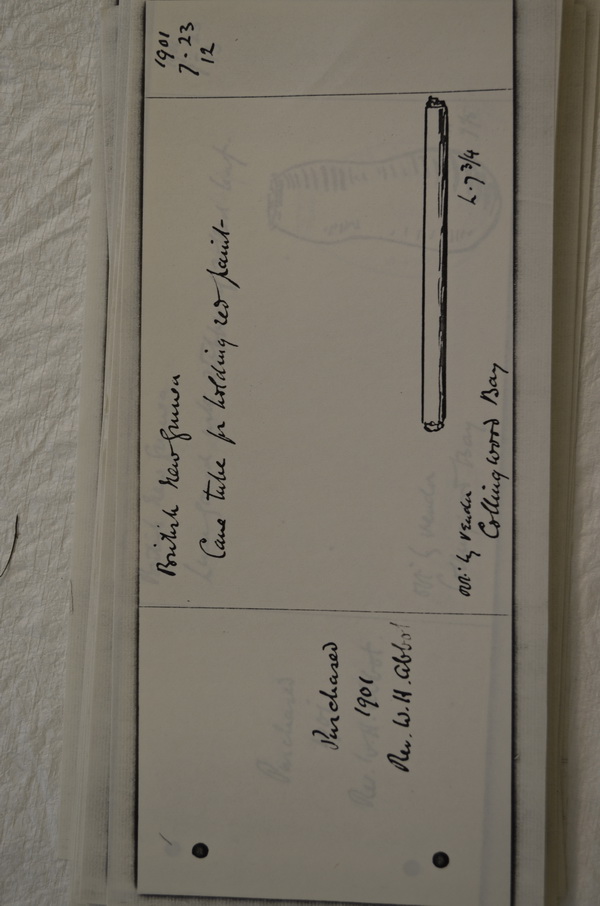 1901
7·23
12
British New Guinea
Cane tube for holding red paint-
L. 7 3/4
Collingwood Bay
Purchased
1901
Rev. W. H. Abbot